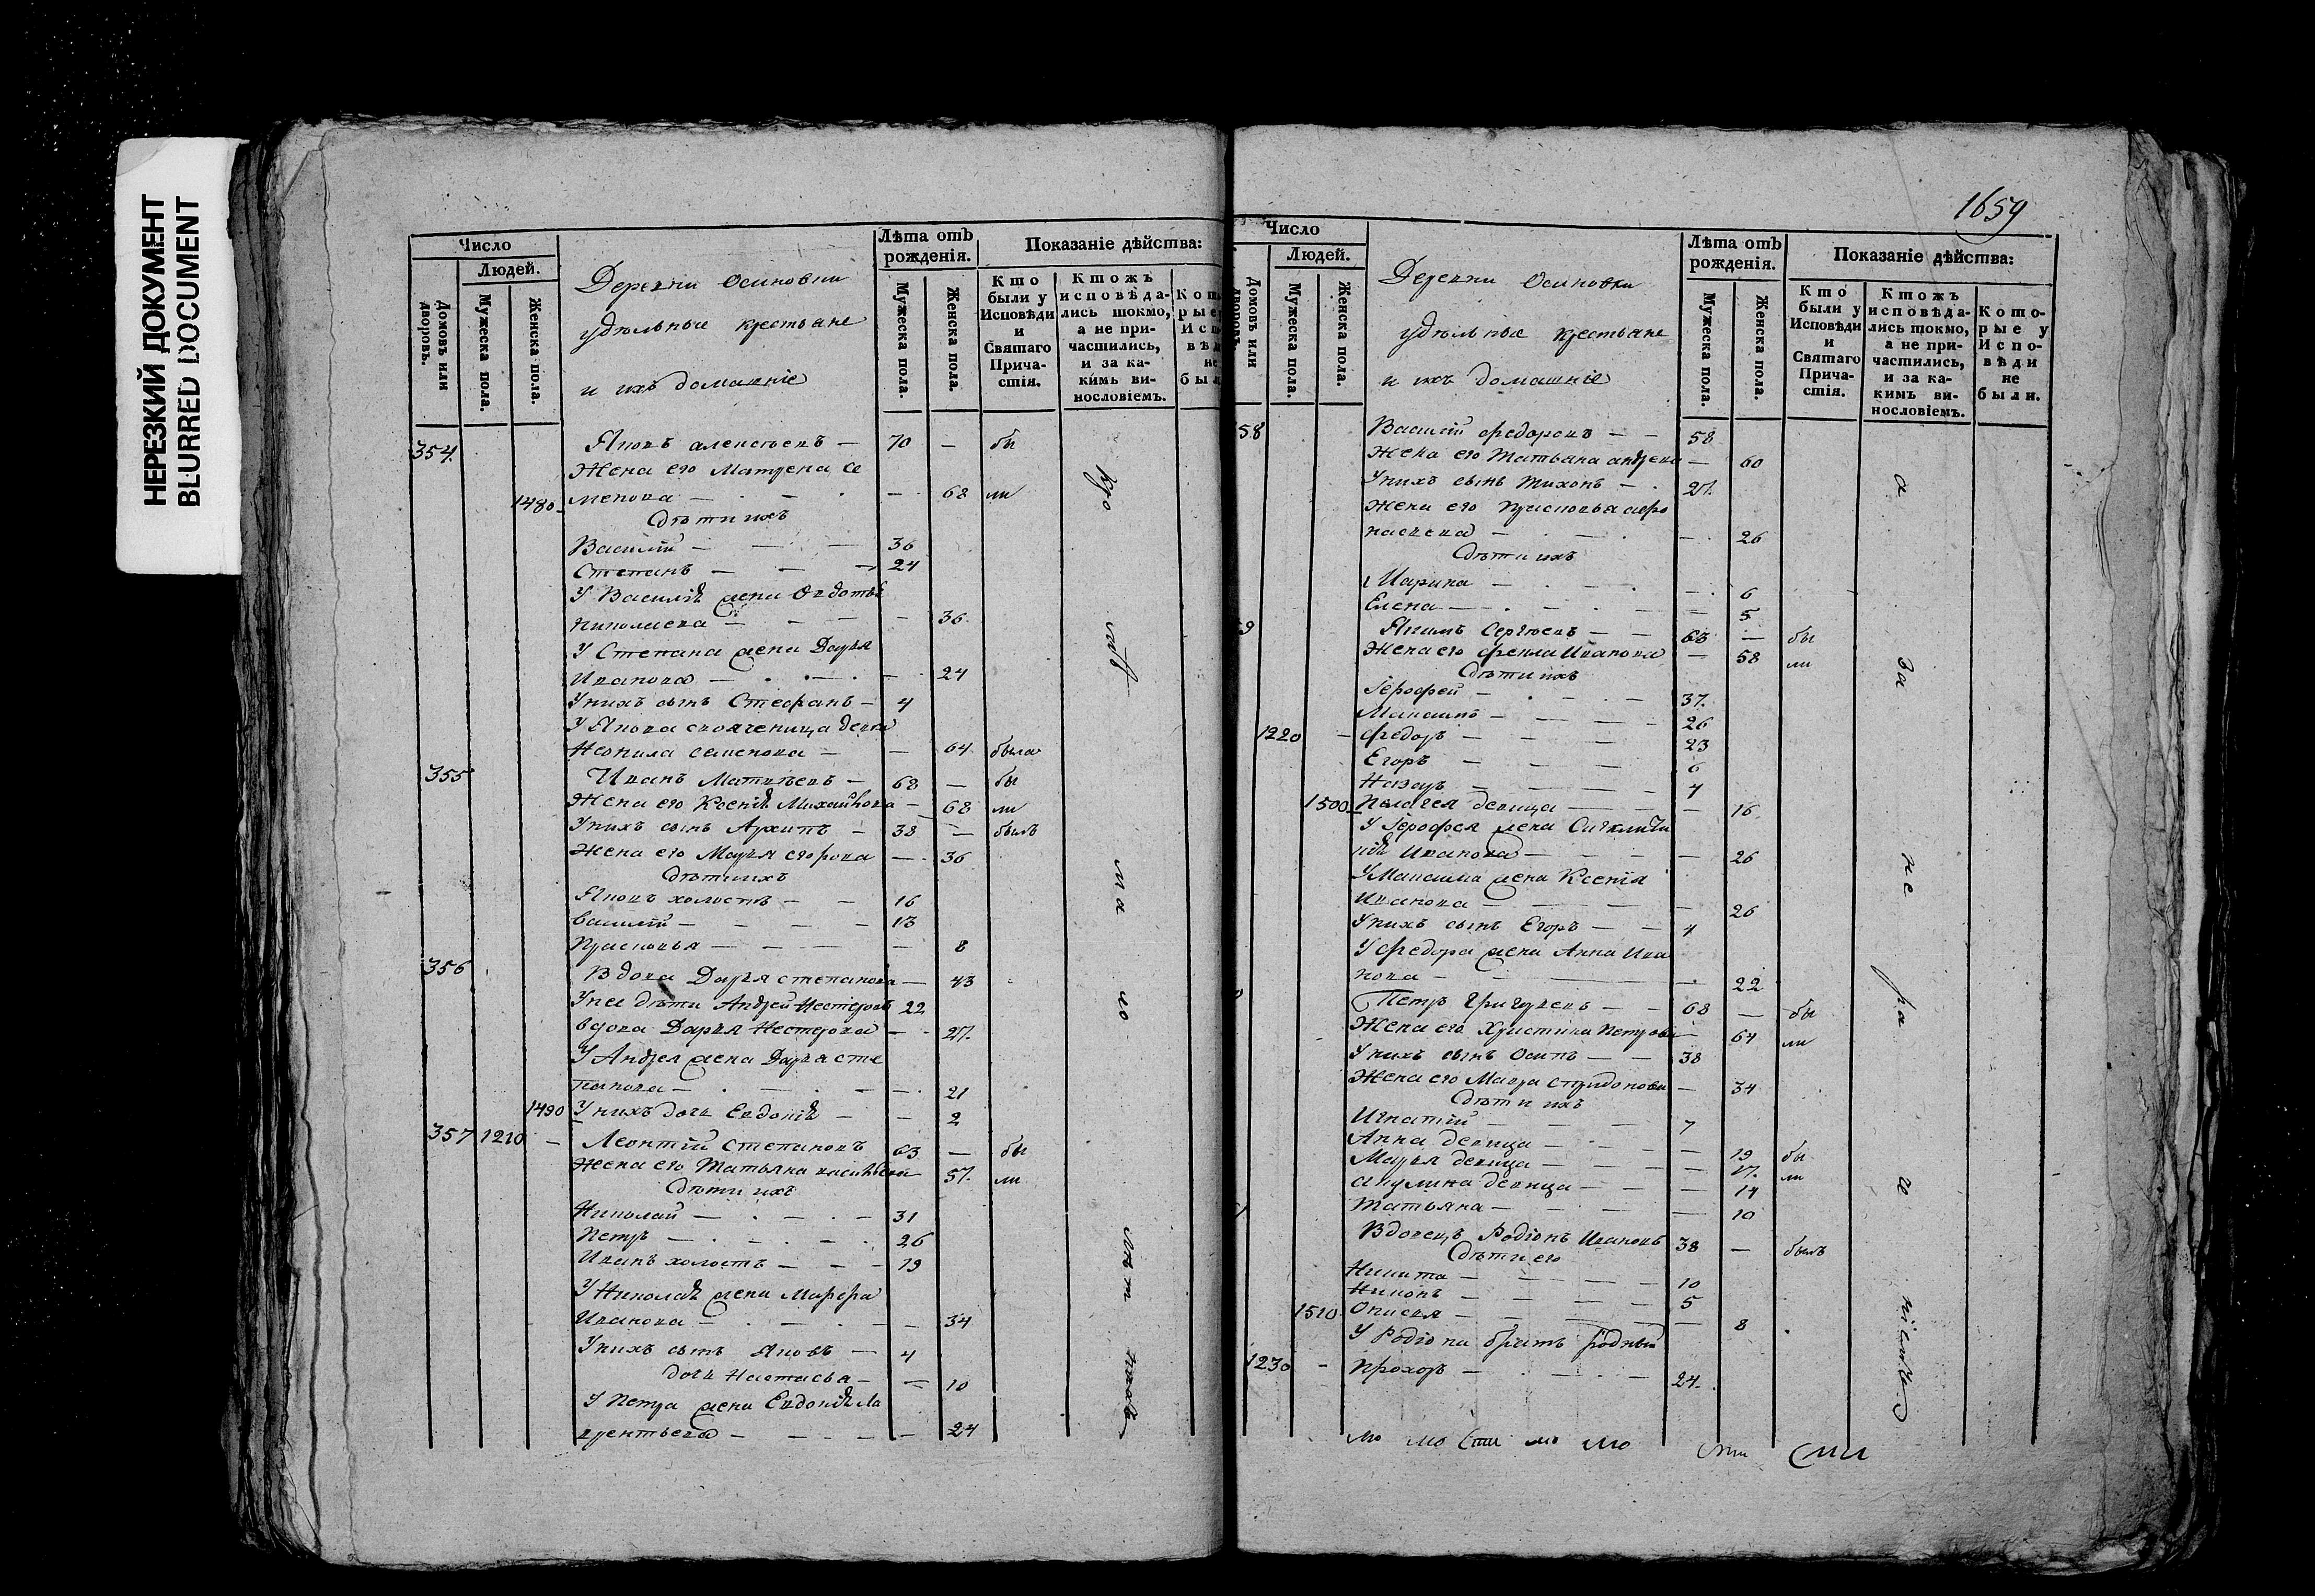 НЕРЕЗКИЙ ДОКУМЕНТ
BLURRED DOCUMENT
Число
Людей.
Домовъ или дворовъ.
Мужеска пола.
Женска пола.
Деревни Осиновки
удѣльные крестьяне
и ихъ домашніе
Лѣта отъ рожденія.
Мужеска пола.
Женска пола.
Показаніе дѣйства:
Кто были у Исповѣди и Святаго Причастія.
Ктожъ исповѣдались токмо, а не причастились, и за какимъ винословіемъ.
354. Яковъ алексѣевъ — 70 — бы
Жена его Матрена се
1480 менова — 68 ли
Дѣти ихъ
Василій — 36
Степанъ — 24
У Василія жена Овдотья
Николаева — 36
У Степана жена Дарья
Иванова — 24
У нихъ сынъ Стефанъ — 4
У Якова свояченица девка
Неонила семенова — 64 была
355 Иванъ Матвѣевъ — 68 — бы
Жена его Ксенія Михайлова — 68 ли
У нихъ сынъ Архипъ — 38 — былъ
Жена его Марья егорова — 36
Дѣти ихъ
Яковъ холостъ — 16
Василій — 13
Прасковья — 8
356 Вдова Дарья степанова — 43
У нея дѣти Андрей Нестеровъ 22
вдова Дарья Нестерова — 27.
У Андрея жена Дарья сте
панова — 21
1490 У нихъ дочь Евдокія — 2
357 1210 — Леонтій Степановъ 63 — бы
Жена его Татьяна васильева 57. ли
Дѣти ихъ
Николай — 31
Петръ — 26
Иванъ холостъ — 19
У Николая жена Марфа
Иванова — 34
У нихъ сынъ Яковъ — 4
дочь Настасья — 10
У Петра жена Евдокія Ла
врентьева — 24
1659
Число
Людей.
Домовъ или дворовъ.
Мужеска пола.
Женска пола.
Деревни Осиновки
удѣльные крестьяне
и ихъ домашніе
Лѣта отъ рожденія.
Мужеска пола.
Женска пола.
Показаніе дѣйства:
Кто были у Исповѣди и Святаго Причастія.
Ктожъ исповѣдались токмо, а не причастились, и за какимъ винословіемъ.
Которые у Исповѣди не были.
58 Василій федоровъ — 58
Жена его Татьяна андреева — 60
У нихъ сынъ Тихонъ — 27.
Жена его Прасковья афо
насьева — 26
Дѣти ихъ
Марина — 6
Елена — 5
Якимъ Сергѣевъ — 63 — бы
Жена его фекла Иванова — 58 ли
Дѣти ихъ
Ерофей — 37.
Максимъ — 26
1220 — федоръ — 23
Егоръ — 6
Назаръ — 4
1500 Пелагея девица — 16
У Ерофея жена Сигклити
кія Иванова — 26
У Максима жена Ксенія
Иванова — 26
У нихъ сынъ Егоръ — 4
У федора жена Анна Ива
нова — 22
Петръ Григорьевъ — 68 — бы
Жена его Христина Петрова — 64 ли
У нихъ сынъ Осипъ — 38
Жена его Мавра спиридонова — 34
Дѣти ихъ
Игнатій — 7
Анна девица — 19 бы
Марья девица — 17. ли
акулина девица — 14
Татьяна — 10
Вдовецъ Родіонъ Ивановъ 38 — былъ
Дѣти его
Никита — 10
Никонъ — 5
1510 Анисья — 8
У Родіона братъ родный
1230 — Прохоръ — 24.
за нерадѣніемъ